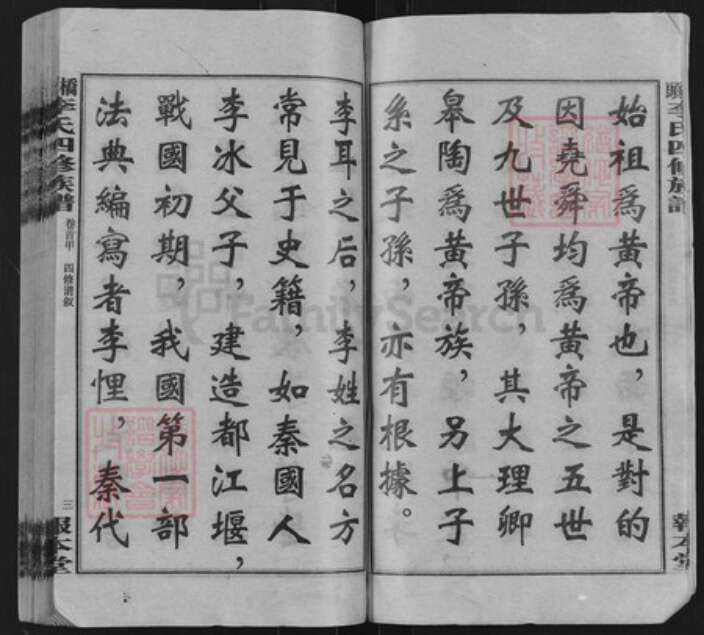 始祖爲黃帝也，是對的
因堯舜均爲黃帝之五世
及九世子孫，其大理卿
皋陶爲黃帝族，另上子
系之子孫，亦有根據。
李耳之后，李姓之名方
常見于史籍，如秦國人
李冰父子，建造都江堰，
戰國初期，我國第一部
法典編寫者李悝，秦代
李氏四修族譜
報本堂
橋李氏四修族譜
卷首甲
四修譜敘
三
報本堂
FamilySearch